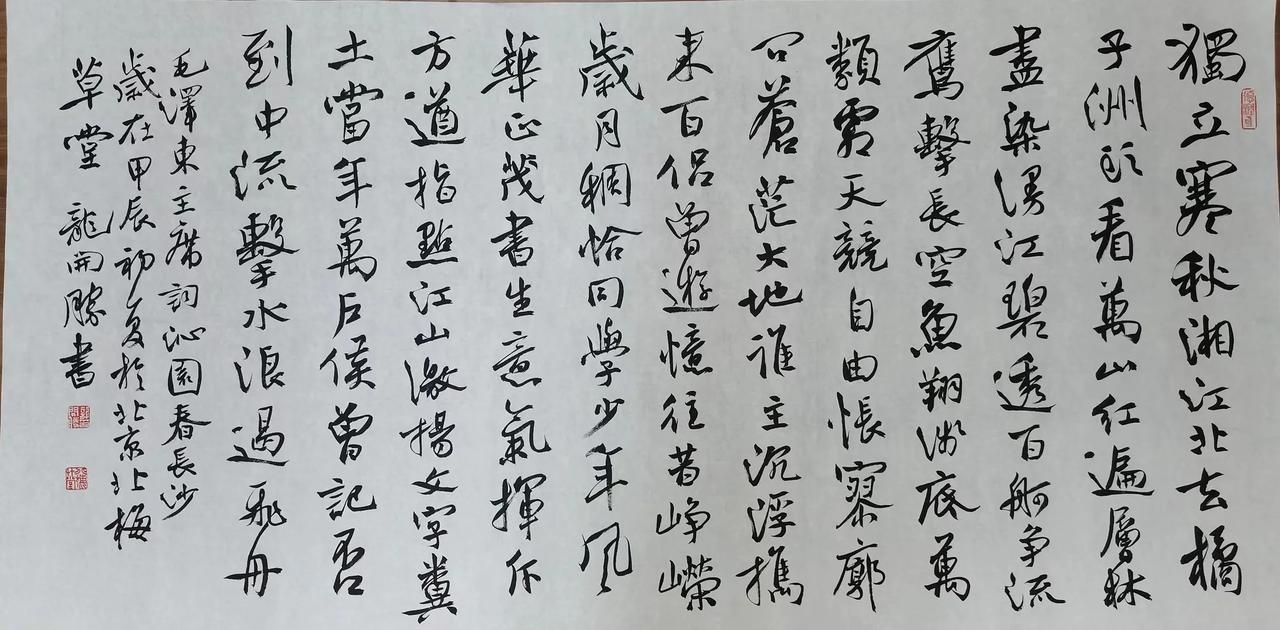 獨立寒秋湘江北去橘
子洲頭看萬山紅遍層林
盡染漫江碧透百舸争流
鷹擊長空魚翔淺底萬
類霜天競自由悵寥廓
问蒼茫大地誰主沉浮攜
来百侣曾遊憶往昔崢嶸
歲月稠恰同學少年風
華正茂書生意氣揮斥
方遒指點江山激揚文字糞
土當年萬户侯曾記否
到中流擊水浪遏飛舟
毛澤東主席詞沁園春長沙
歲在甲辰初夏於北京北梅
草堂 龍開勝書